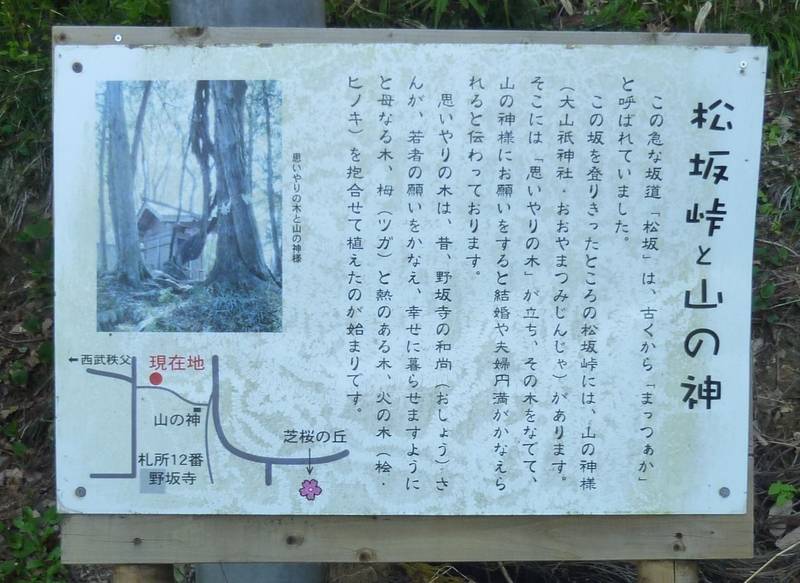 松坂峠と山の神
この急な坂道「松坂」は、古くから「まっつぁか」
と呼ばれていました。
この坂を登りきったところの松坂峠には、山の神様
（大山祇神社・おおやまつみじんじゃ）があります。
そこには「思いやりの木」が立ち、その木をなでて、
山の神様にお願いをすると結婚や夫婦円満がかなえら
れると伝わっております。
思いやりの木は、昔、野坂寺の和尚（おしょう）さ
んが、若者の願いをかなえ、幸せに暮らせますように
と母なる木、栂（ツガ）と熱のある木、火の木（桧・
ヒノキ）を抱合せて植えたのが始まりです。
思いやりの木と山の神様
←西武秩父
現在地
山の神
芝桜の丘
札所12番
野坂寺